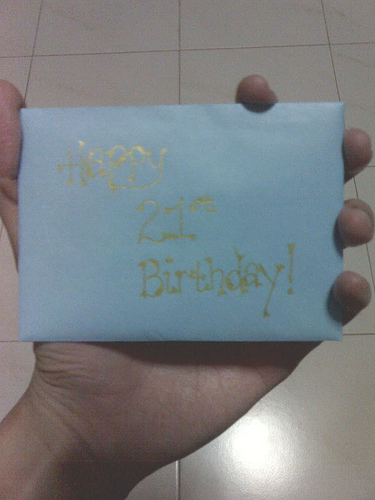 Happy
21st
Birthday!